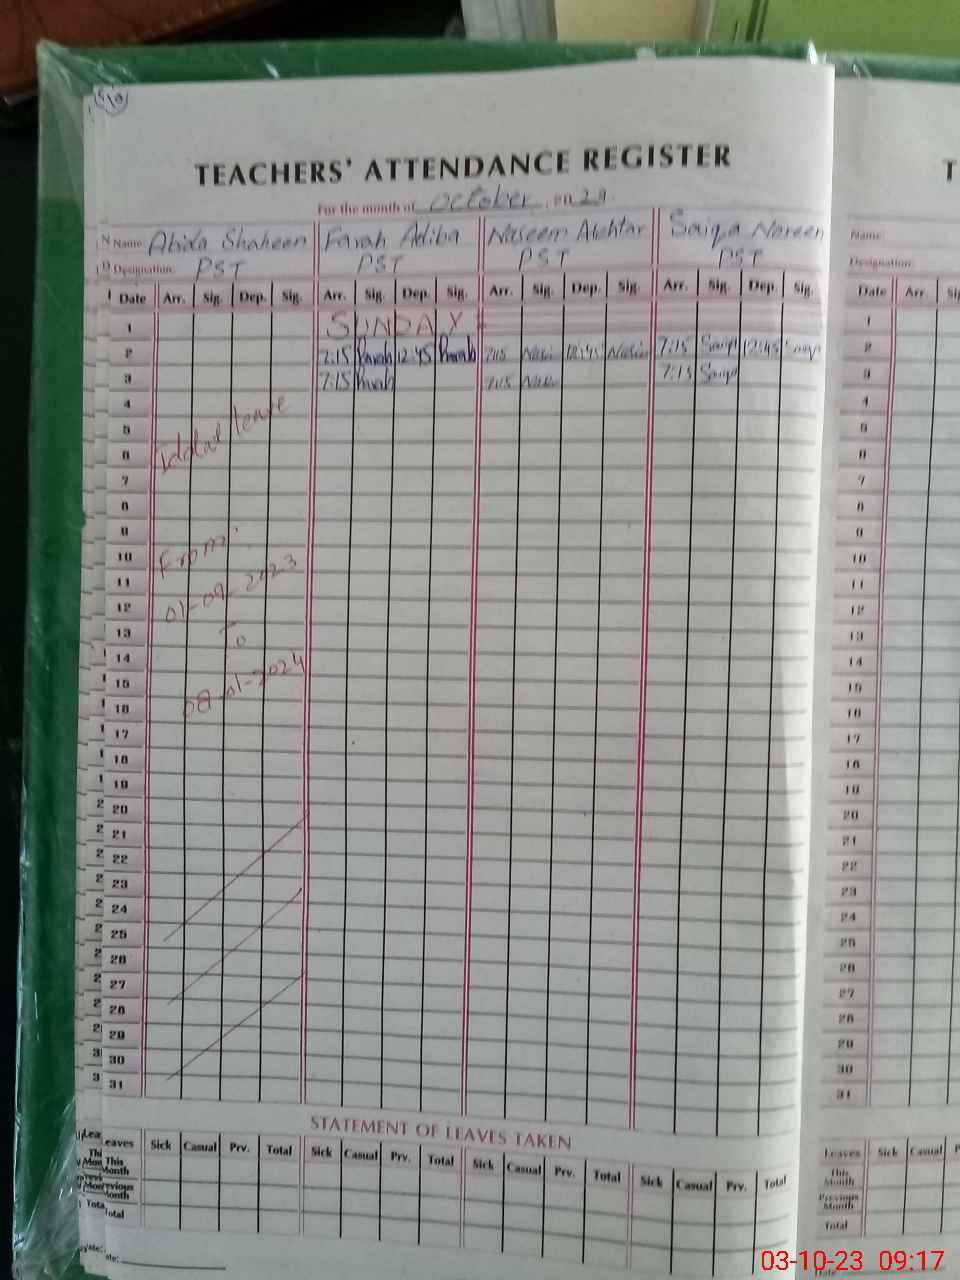 TEACHERS' ATTENDANCE REGISTER
For the month of October 2023
Name: Abida Shaheen Farah Adiba Naseem Akhtar Saiqa Noreen
Designation: PST PST PST PST
Date Arr. Sig. Dep. Sig. Arr. Sig. Dep. Sig. Arr. Sig. Dep. Sig. Arr. Sig. Dep. Sig.
1 SUNDAY
2 7:15 Farah 12:45 Farah 7:15 12:45 7:15 12:45
3 7:15 Farah 7:15 7:15
4
5
6 Iddat leave
7
8
9
10 From:
11
12 01-09-2023
13 To
14
15
16 08-01-2024
17
18
19
20
21
22
23
24
25
26
27
28
29
30
31
STATEMENT OF LEAVES TAKEN
Leaves Sick Casual Prv. Total Sick Casual Prv. Total Sick Casual Prv. Total Sick Casual Prv. Total
This Month
Previous Month
Total
Name:
Designation:
Date Arr.
1
2
3
4
5
6
7
8
9
10
11
12
13
14
15
16
17
18
19
20
21
22
23
24
25
26
27
28
29
30
31
Leaves Sick Casual
This Month
Previous Month
Total
Date
03-10-23 09:17